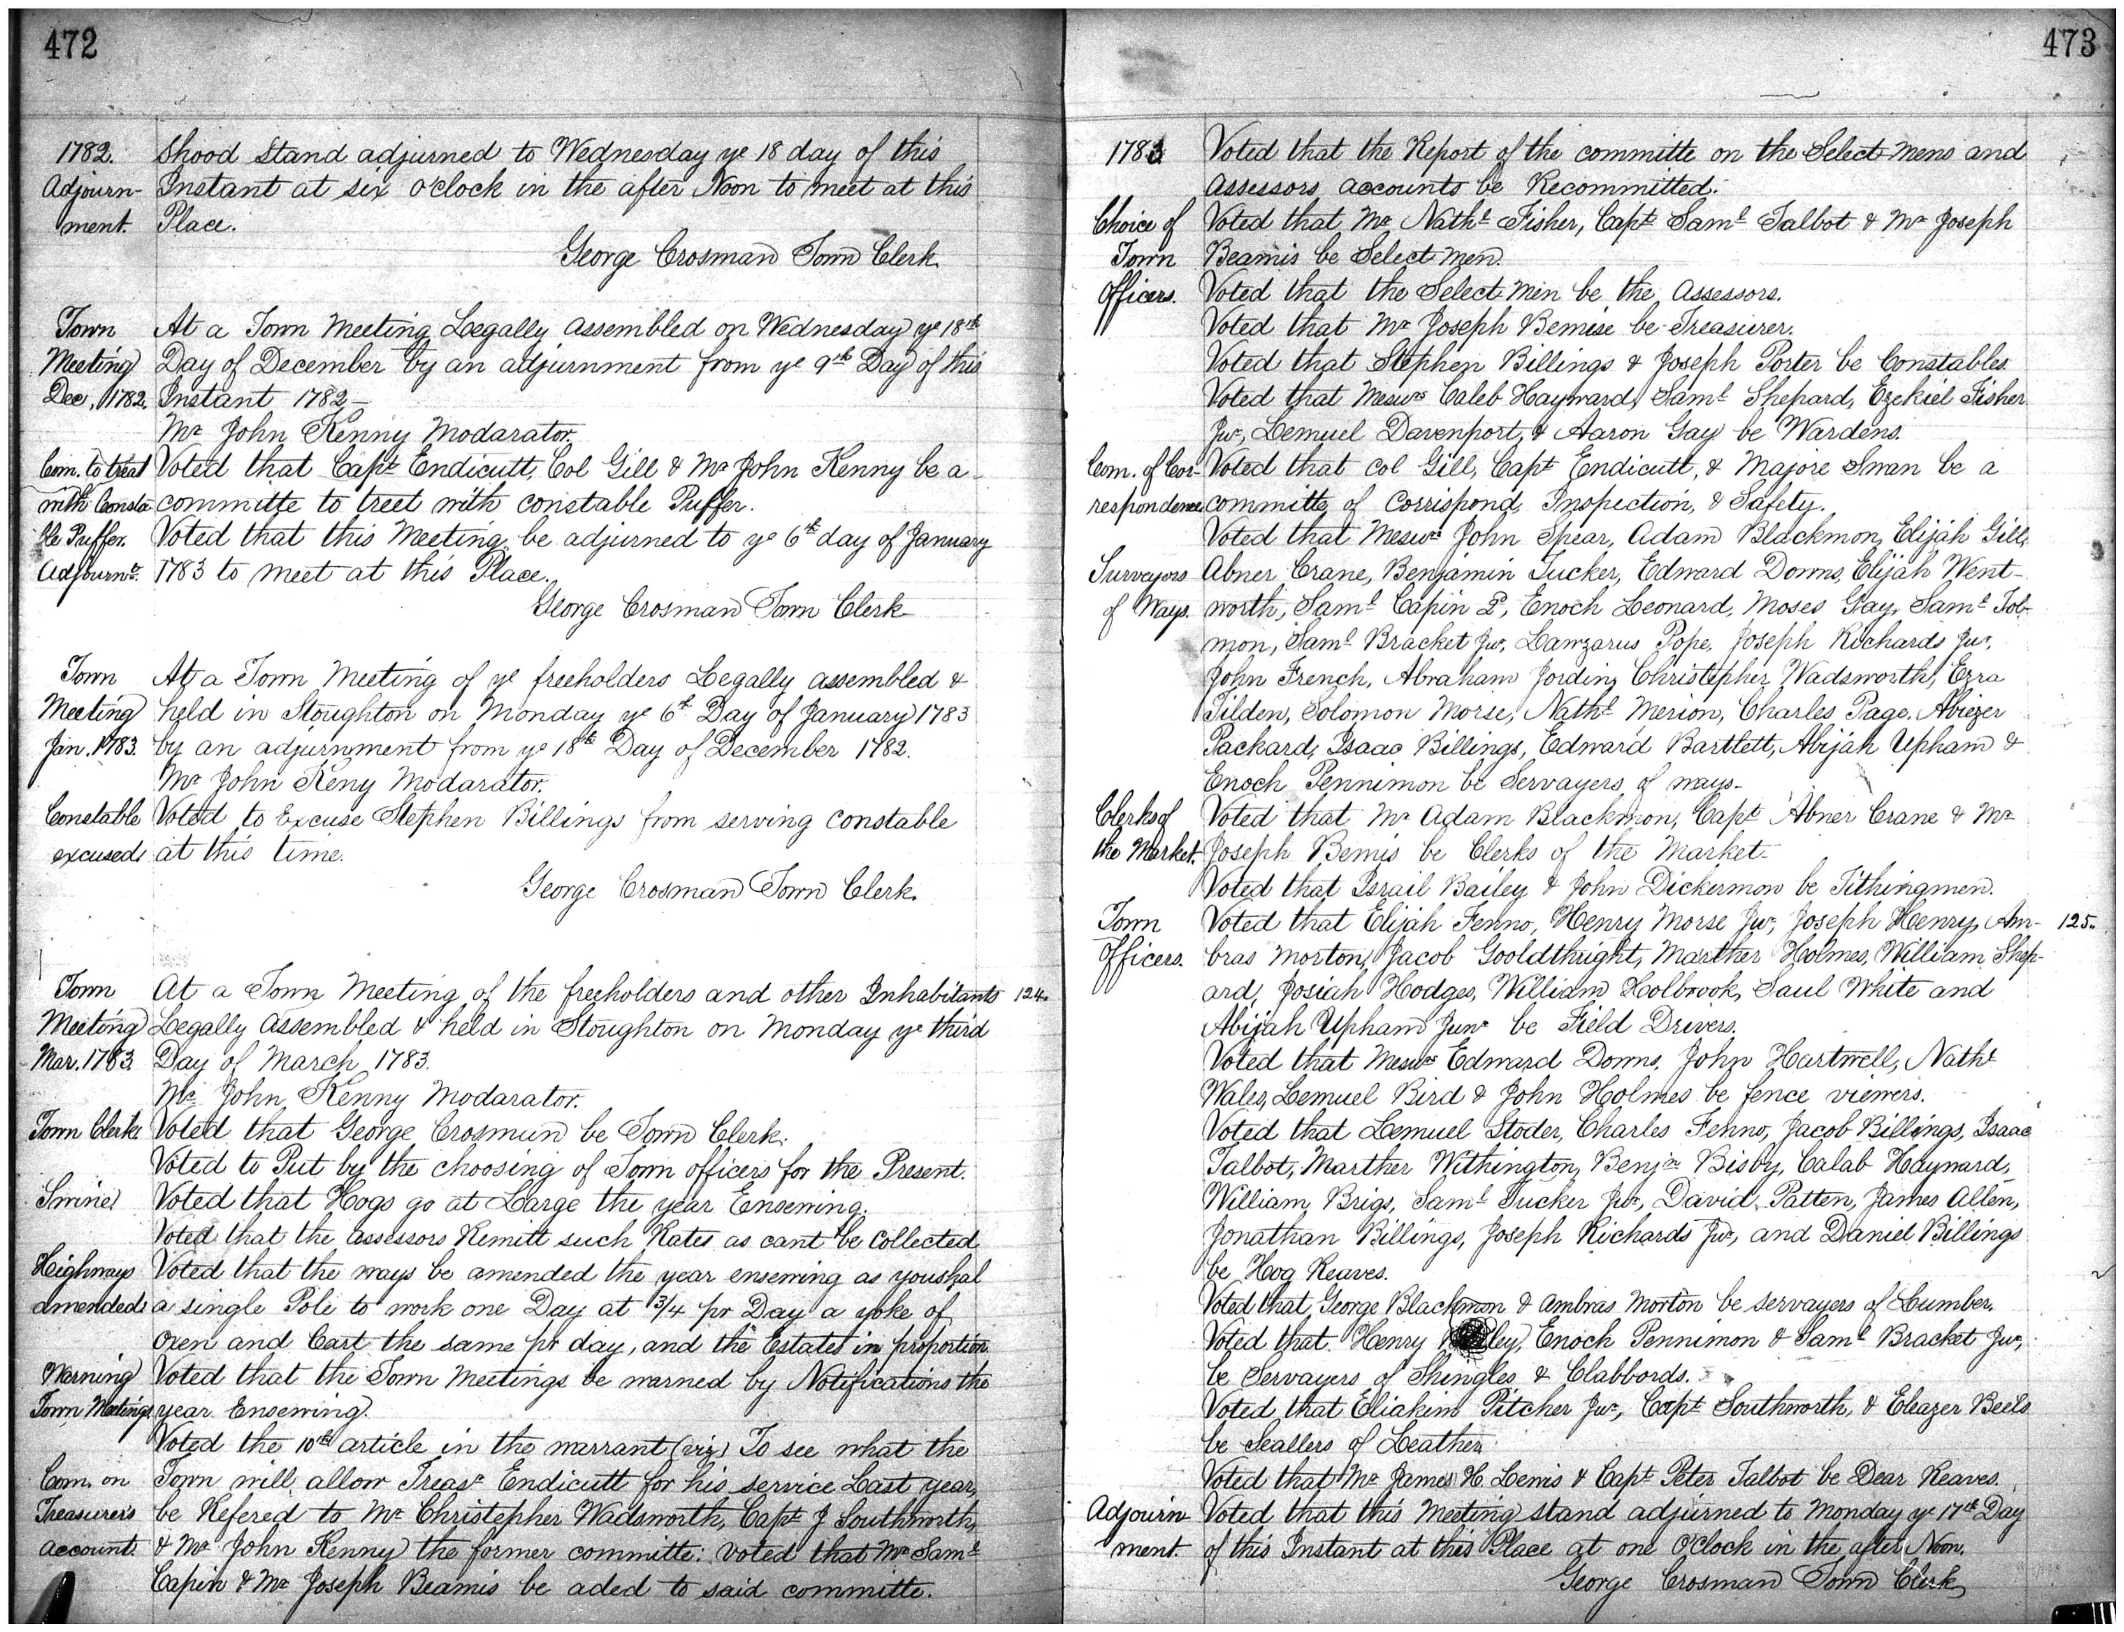 472
1782. Shood Stand adjurned to Wednesday ye 18 day of this
Adjourn- Instant at six o'clock in the after Noon to meet at this
ment. Place.
George Crosman Town Clerk.
Town At a Town Meeting Legally Assembled on Wednesday ye 18th
Meeting Day of December by an adjurnment from ye 9th Day of this
Dec. 1782. Instant 1782 —
Mr John Kenny Modarator.
Com. to treat Voted that Capt Endicutt, Col Gill & Mr John Kenny be a
with Consta- committe to treet with constable Puffer.
ble Puffer. Voted that this Meeting be adjurned to ye 6th day of January
Adjournt. 1783 to meet at this Place.
George Crosman Town Clerk
Town At a Town Meeting of ye freeholders Legally assembled &
Meeting held in Stoughton on Monday ye 6th Day of January 1783
Jan. 1783. by an adjurnment from ye 18th Day of December 1782.
Mr John Keny Modarator.
Constable Voted to Excuse Stephen Billings from serving constable
excused at this time.
George Crosman Town Clerk.
Town At a Town Meeting of the freeholders and other Inhabitants 124.
Meeting Legally Assembled & held in Stoughton on Monday ye third
Mar. 1783. Day of March 1783.
Mr John Kenny Modarator.
Town Clerk. Voted that George Crosmun be Town Clerk.
Voted to Put by the choosing of Town officers for the Present.
Swine Voted that Hogs go at Large the year Ensewing.
Voted that the assessors Remitt such Rates as cant be collected
Heighways Voted that the ways be amended the year ensewing as youshal
amended a single Pole to work one Day at 3/4 pr Day a yoke of
Oxen and Cart the same pr day, and the Estates in proportion
Warning Voted that the Town Meetings be warned by Notifications the
Town Meetings year Ensewing.
Voted the 10th article in the warrant (viz) To see what the
Com. on Town will allow Treasr Endicutt for his service Last year,
Treasurer's be Refered to Mr Christepher Wadsworth, Capt J Southworth,
account. & Mr John Kenny the former committe: voted that Mr Saml
Capin & Mr Joseph Beamis be aded to said committe.
473
1783 Voted that the Report of the committe on the Select mens and
Assessors accounts be Recommitted.
Choice of Voted that Mr Nathl Fisher, Capt Saml Talbot & Mr Joseph
Town Beamis be Select men.
Officers. Voted that the Select men be the Assessors.
Voted that Mr Joseph Bemise be Treasurer.
Voted that Stephen Billings & Joseph Porter be Constables.
Voted that Messrs Caleb Hayward, Saml Shepard, Ezekiel Fisher
Jur, Lemuel Davenport, & Aaron Gay be Wardens.
Com. of Cor- Voted that Col Gill, Capt Endicutt, & Majore Swan be a
respondence committe of Corrispond, Inspection, & Safety.
Voted that Messrs John Spear, Adam Blackmon, Elijah Gill,
Surveyors Abner Crane, Benjamin Tucker, Edward Downs, Elijah Went-
of Ways. worth, Saml Capin, Enoch Leonard, Moses Gay, Saml Tol-
mon, Saml Bracket Jur, Lawzarus Pope, Joseph Richards Jur,
John French, Abraham Jordin, Christepher Wadsworth, Ezra
Tilden, Solomon Morse, Nathl Merion, Charles Page, Abiezer
Packard, Isaac Billings, Edward Bartlett, Abijah Upham &
Enoch Pennimon be Servayers of ways.
Clerks of Voted that Mr Adam Blackmon, Capt Abner Crane & Mr
the Market. Joseph Bemis be Clerks of the Market.
Voted that Israil Bailey & John Dickermon be Tithingmen.
Town Voted that Elijah Fenno, Henry Morse Jur, Joseph Henry, Am- 125.
Officers. bras Morton, Jacob Gooldthright, Marther Holmes, William Shep-
ard, Josiah Hodges, William Holbrook, Saul White and
Abijah Upham Junr be Field Drivers.
Voted that Messrs Edward Downs, John Hartwell, Nathl
Wales, Lemuel Bird & John Holmes be fence viewers.
Voted that Lemuel Stoder, Charles Fenno, Jacob Billings, Isaac
Talbot, Marther Withington, Benjn Bisby, Calab Hayward,
William Brigs, Saml Tucker Jur, David Patten, James Allen,
Jonathan Billings, Joseph Richards Jur, and Daniel Billings
be Hog Reaves.
Voted that George Blackmon & Ambras Morton be servayers of Lumber.
Voted that Henry Enoch Pennimon & Saml Bracket Jur,
be Servayers of Shingles & Clabbords.
Voted that Eliakim Pitcher Jur, Capt Southworth, & Eleazer Beels
be Seallers of Leather.
Voted that Mr James H. Lewis & Capt Peter Talbot be Dear Reaves.
Adjourn- Voted that this Meeting stand adjurned to Monday ye 17th Day
ment. of this Instant at this Place at one O'Clock in the after Noon.
George Crosman Town Clerk